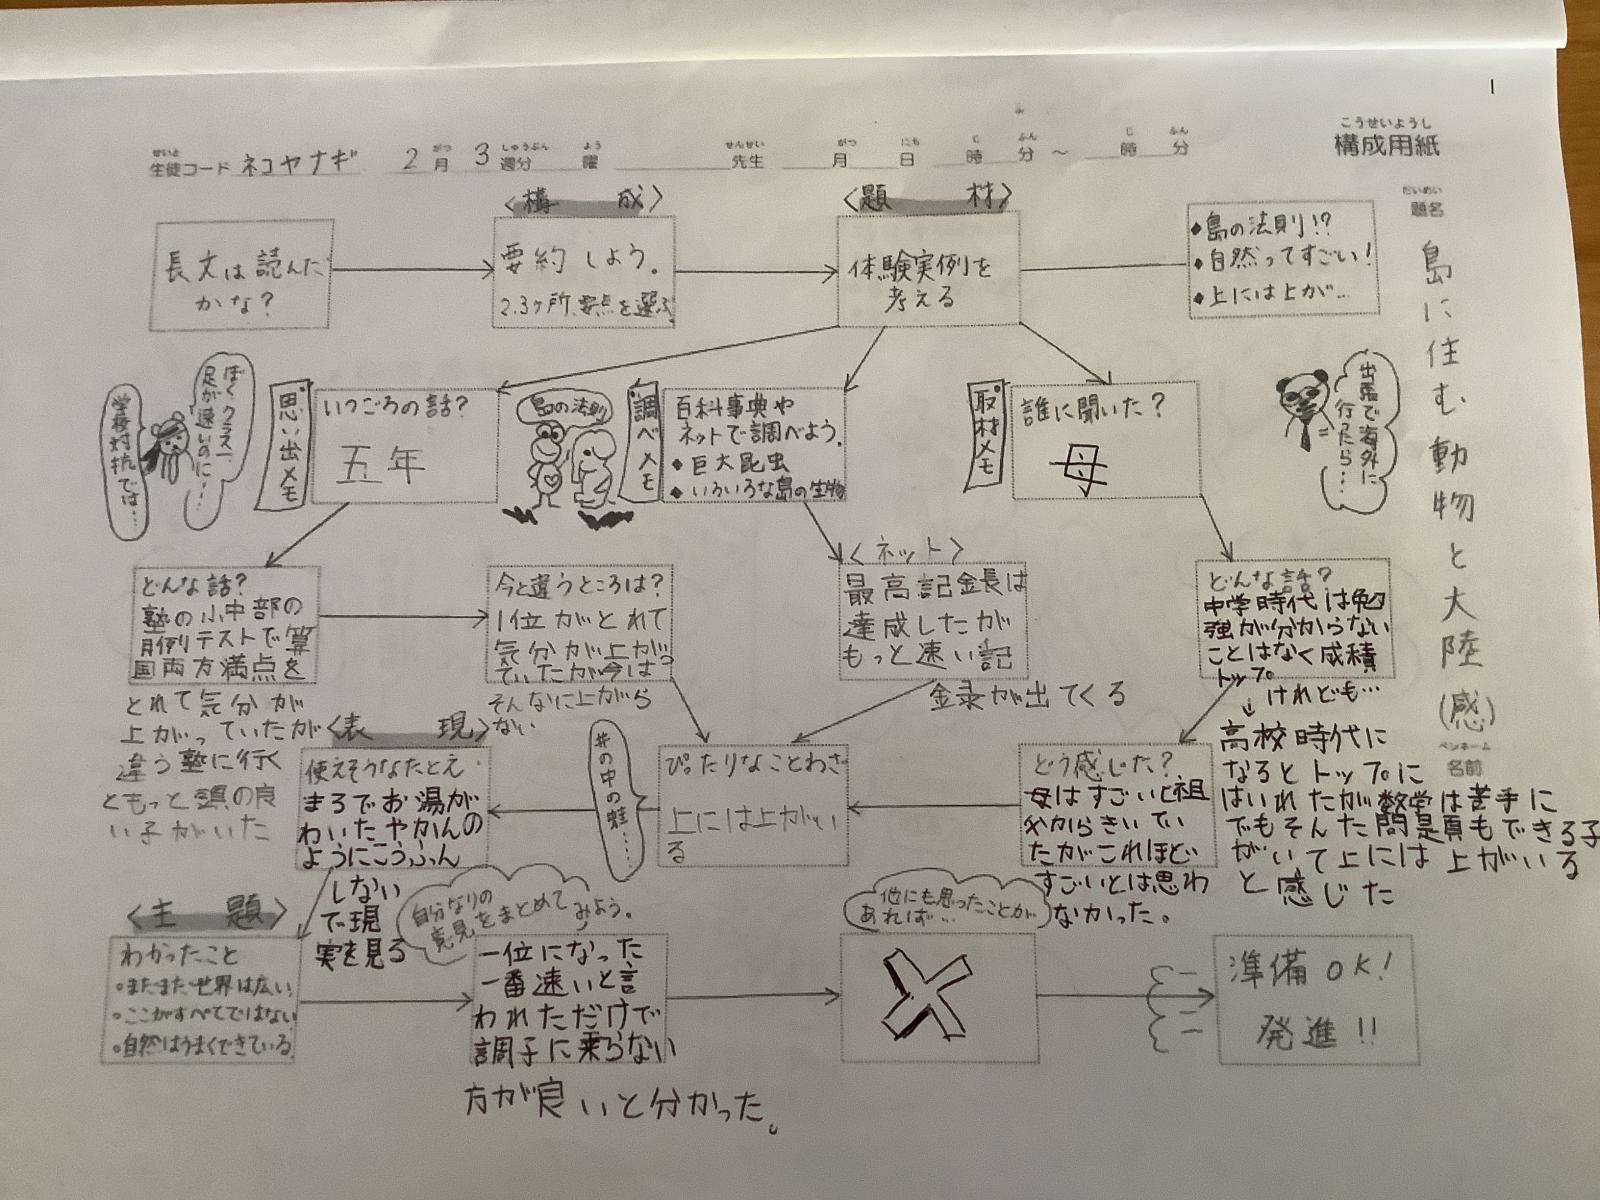 1
こうせいようし
構成用紙
せいと がつ しゅうぶん よう せんせい がつ にち じ ふん じ ふん
生徒コード ネコヤナギ 2月 3週分 曜 先生 月 日 時 分 ～ 時 分
だいめい
題名
島に住む動物と大陸(感)
ペンネーム
名前
長文は読んだ
かな？
〈構 成〉
要約しよう。
2.3ヶ所、要点を選ぶ。
〈題 材〉
体験実例を
考える
◆島の法則!?
◆自然ってすごい！
◆上には上が…
学校対抗では…
ぼくクラス一、
足が速いのに…
思い出メモ
いつごろの話？
五年
島の法則
調べメモ
百科事典や
ネットで調べよう。
◆巨大昆虫
◆いろいろな島の生物
取材メモ
誰に聞いた？
母
出張で海外に
行ったら…
どんな話？
塾の小中部の
月例テストで算
国両方満点を
とれて気分が
上がっていたが
違う塾に行く
ともっと頭の良
い子がいた
今と違うところは？
1位がとれて
気分が上がっ
ていたが今は
そんなに上がら
ない
〈ネット〉
最高記録は
達成したが
もっと速い記
録が出てくる
どんな話？
中学時代は勉
強が分からない
ことはなく成積
トップ。
↓けれども…
高校時代に
なるとトップに
はいれたが数学は苦手に
でもそんな問題もできる子
がいて上には上がいる
と感じた
どう感じた？
母はすごいと祖
父からきいてい
たがこれほど
すごいとは思わ
なかった。
ぴったりなことわざ
上には上がい
る
井の中の蛙…
〈表 現〉
使えそうなたとえ
まるでお湯が
わいたやかんの
ようにこうふん
しない
で現
実を見る
〈主 題〉
わかったこと
・まだまだ世界は広い。
・ここがすべてではない
・自然はうまくできている。
自分なりの
意見をまとめて
みよう。
一位になった
一番速いと言
われただけで
調子に乗らない
方が良いと分かった。
他にも思ったことが
あれば…
準備OK！
発進!!